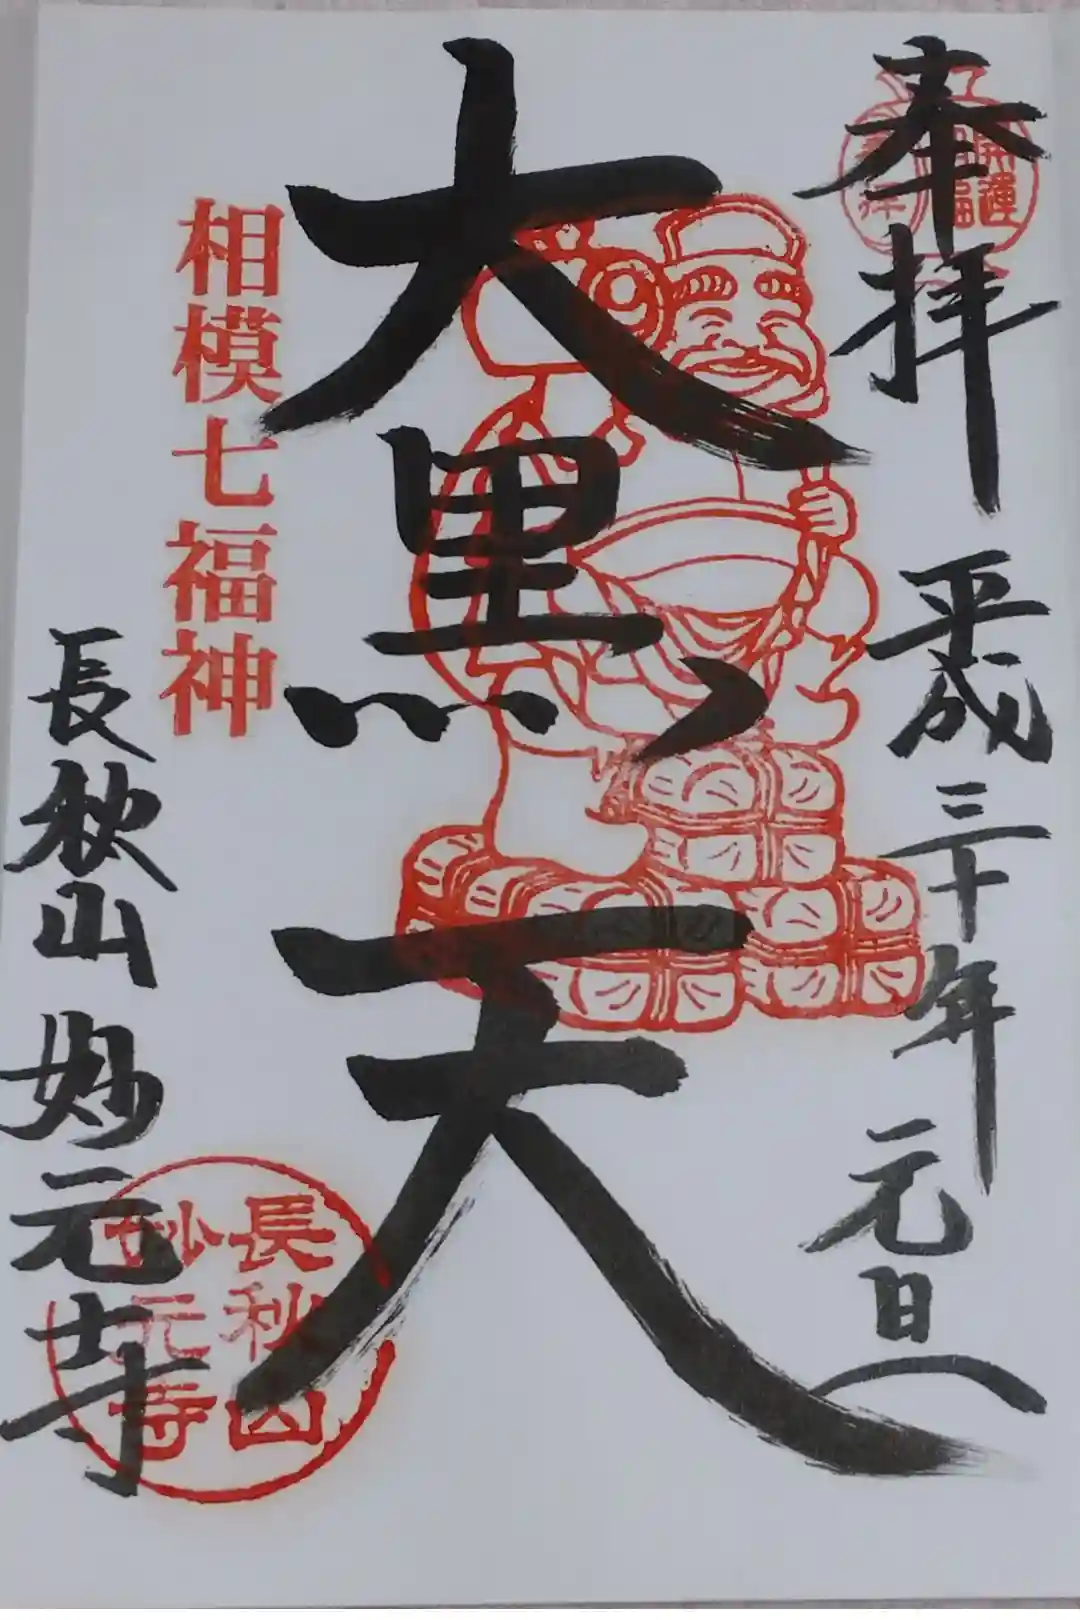 奉拝
開運
招福
平成三十年
元旦
大黒天
相模七福神
長秋山
妙元寺
長秋山
妙元寺